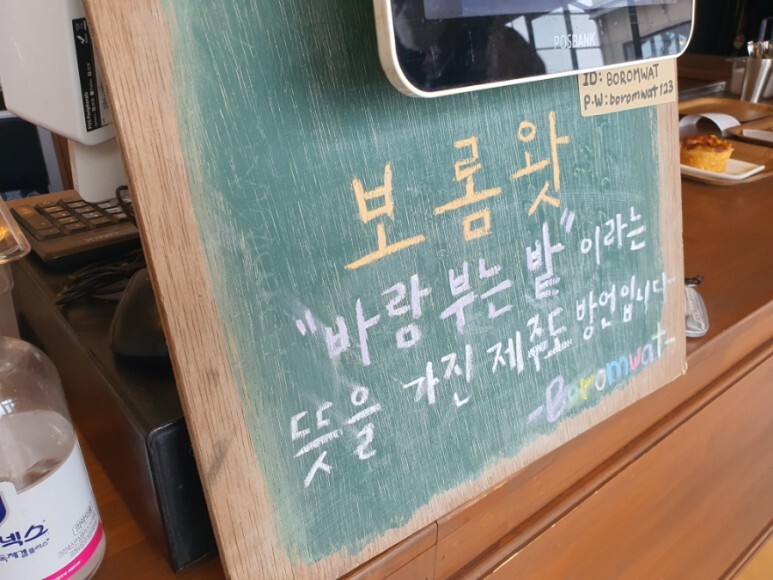 POSBANK
ID: BOROMWAT
P.W: boromwat123
보롬왓
"바람 부는 밭"이라는
뜻을 가진 제주도 방언입니다-
-Boromwat-
넥스